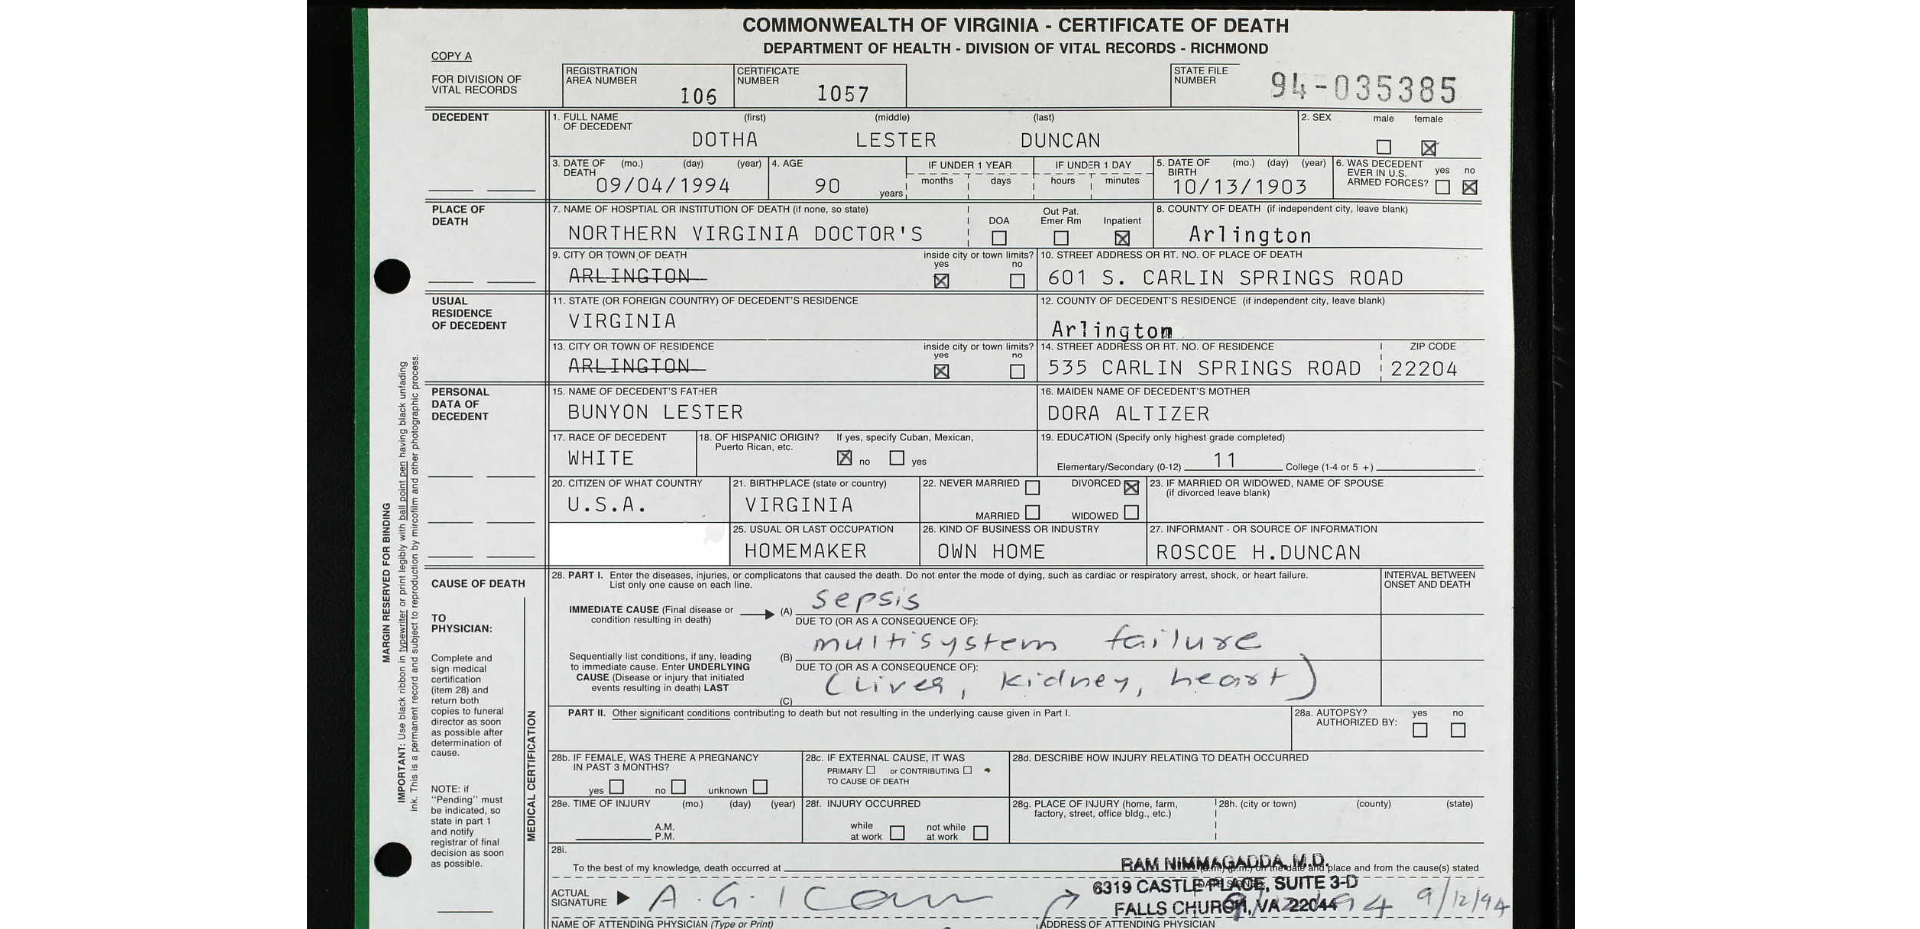 COMMONWEALTH OF VIRGINIA - CERTIFICATE OF DEATH
DEPARTMENT OF HEALTH - DIVISION OF VITAL RECORDS - RICHMOND
COPY A
FOR DIVISION OF VITAL RECORDS
REGISTRATION AREA NUMBER 106
CERTIFICATE NUMBER 1057
STATE FILE NUMBER 94-035385
DECEDENT
1. FULL NAME OF DECEDENT (first) (middle) (last)
DOTHA LESTER DUNCAN
2. SEX male female
3. DATE OF DEATH (mo.) (day) (year)
09/04/1994
4. AGE 90 years
IF UNDER 1 YEAR months days
IF UNDER 1 DAY hours minutes
5. DATE OF BIRTH (mo.) (day) (year)
10/13/1903
6. WAS DECEDENT EVER IN U.S. ARMED FORCES? yes no
PLACE OF DEATH
7. NAME OF HOSPTIAL OR INSTITUTION OF DEATH (if none, so state)
NORTHERN VIRGINIA DOCTOR'S
DOA
Out Pat. Emer Rm
Inpatient
8. COUNTY OF DEATH (if independent city, leave blank)
Arlington
9. CITY OR TOWN OF DEATH
ARLINGTON
inside city or town limits? yes no
10. STREET ADDRESS OR RT. NO. OF PLACE OF DEATH
601 S. CARLIN SPRINGS ROAD
USUAL RESIDENCE OF DECEDENT
11. STATE (OR FOREIGN COUNTRY) OF DECEDENT'S RESIDENCE
VIRGINIA
12. COUNTY OF DECEDENT'S RESIDENCE (if independent city, leave blank)
Arlington
13. CITY OR TOWN OF RESIDENCE
ARLINGTON
inside city or town limits? yes no
14. STREET ADDRESS OR RT. NO. OF RESIDENCE
535 CARLIN SPRINGS ROAD
ZIP CODE
22204
PERSONAL DATA OF DECEDENT
15. NAME OF DECEDENT'S FATHER
BUNYON LESTER
16. MAIDEN NAME OF DECEDENT'S MOTHER
DORA ALTIZER
17. RACE OF DECEDENT
WHITE
18. OF HISPANIC ORIGIN? If yes, specify Cuban, Mexican, Puerto Rican, etc.
no yes
19. EDUCATION (Specify only highest grade completed)
Elementary/Secondary (0-12) 11 College (1-4 or 5 +)
20. CITIZEN OF WHAT COUNTRY
U.S.A.
21. BIRTHPLACE (state or country)
VIRGINIA
22. NEVER MARRIED DIVORCED
MARRIED WIDOWED
23. IF MARRIED OR WIDOWED, NAME OF SPOUSE (if divorced leave blank)
25. USUAL OR LAST OCCUPATION
HOMEMAKER
26. KIND OF BUSINESS OR INDUSTRY
OWN HOME
27. INFORMANT - OR SOURCE OF INFORMATION
ROSCOE H.DUNCAN
CAUSE OF DEATH
28. PART I. Enter the diseases, injuries, or complicatons that caused the death. Do not enter the mode of dying, such as cardiac or respiratory arrest, shock, or heart failure.
List only one cause on each line.
INTERVAL BETWEEN ONSET AND DEATH
IMMEDIATE CAUSE (Final disease or condition resulting in death)
(A) sepsis
DUE TO (OR AS A CONSEQUENCE OF):
(B) multisystem failure
DUE TO (OR AS A CONSEQUENCE OF):
(C) (Liver, kidney, heart)
Sequentially list conditions, if any, leading to immediate cause. Enter UNDERLYING CAUSE (Disease or injury that initiated events resulting in death) LAST
PART II. Other significant conditions contributing to death but not resulting in the underlying cause given in Part I.
28a. AUTOPSY? AUTHORIZED BY: yes no
28b. IF FEMALE, WAS THERE A PREGNANCY IN PAST 3 MONTHS?
yes no unknown
28c. IF EXTERNAL CAUSE, IT WAS
PRIMARY or CONTRIBUTING
TO CAUSE OF DEATH
28d. DESCRIBE HOW INJURY RELATING TO DEATH OCCURRED
28e. TIME OF INJURY (mo.) (day) (year)
A.M.
P.M.
28f. INJURY OCCURRED
while at work not while at work
28g. PLACE OF INJURY (home, farm, factory, street, office bldg., etc.)
28h. (city or town) (county) (state)
28i.
To the best of my knowledge, death occurred at place and from the cause(s) stated
RAM NIMMAGADDA, M.D.
6319 CASTLE PLACE, SUITE 3-D
FALLS CHURCH, VA 22044
ACTUAL SIGNATURE
9/12/94
NAME OF ATTENDING PHYSICIAN (Type or Print)
ADDRESS OF ATTENDING PHYSICIAN
TO PHYSICIAN:
Complete and
sign medical
certification
(item 28) and
return both
copies to funeral
director as soon
as possible after
determination of
cause.
NOTE: if
"Pending" must
be indicated, so
state in part 1
and notify
registrar of final
decision as soon
as possible.
MEDICAL CERTIFICATION
MARGIN RESERVED FOR BINDING
IMPORTANT: Use black ribbon in typewriter or print legibly with ball point pen having black unfading
ink. This is a permanent record and subject to reproduction by mircofilm and other photographic process.